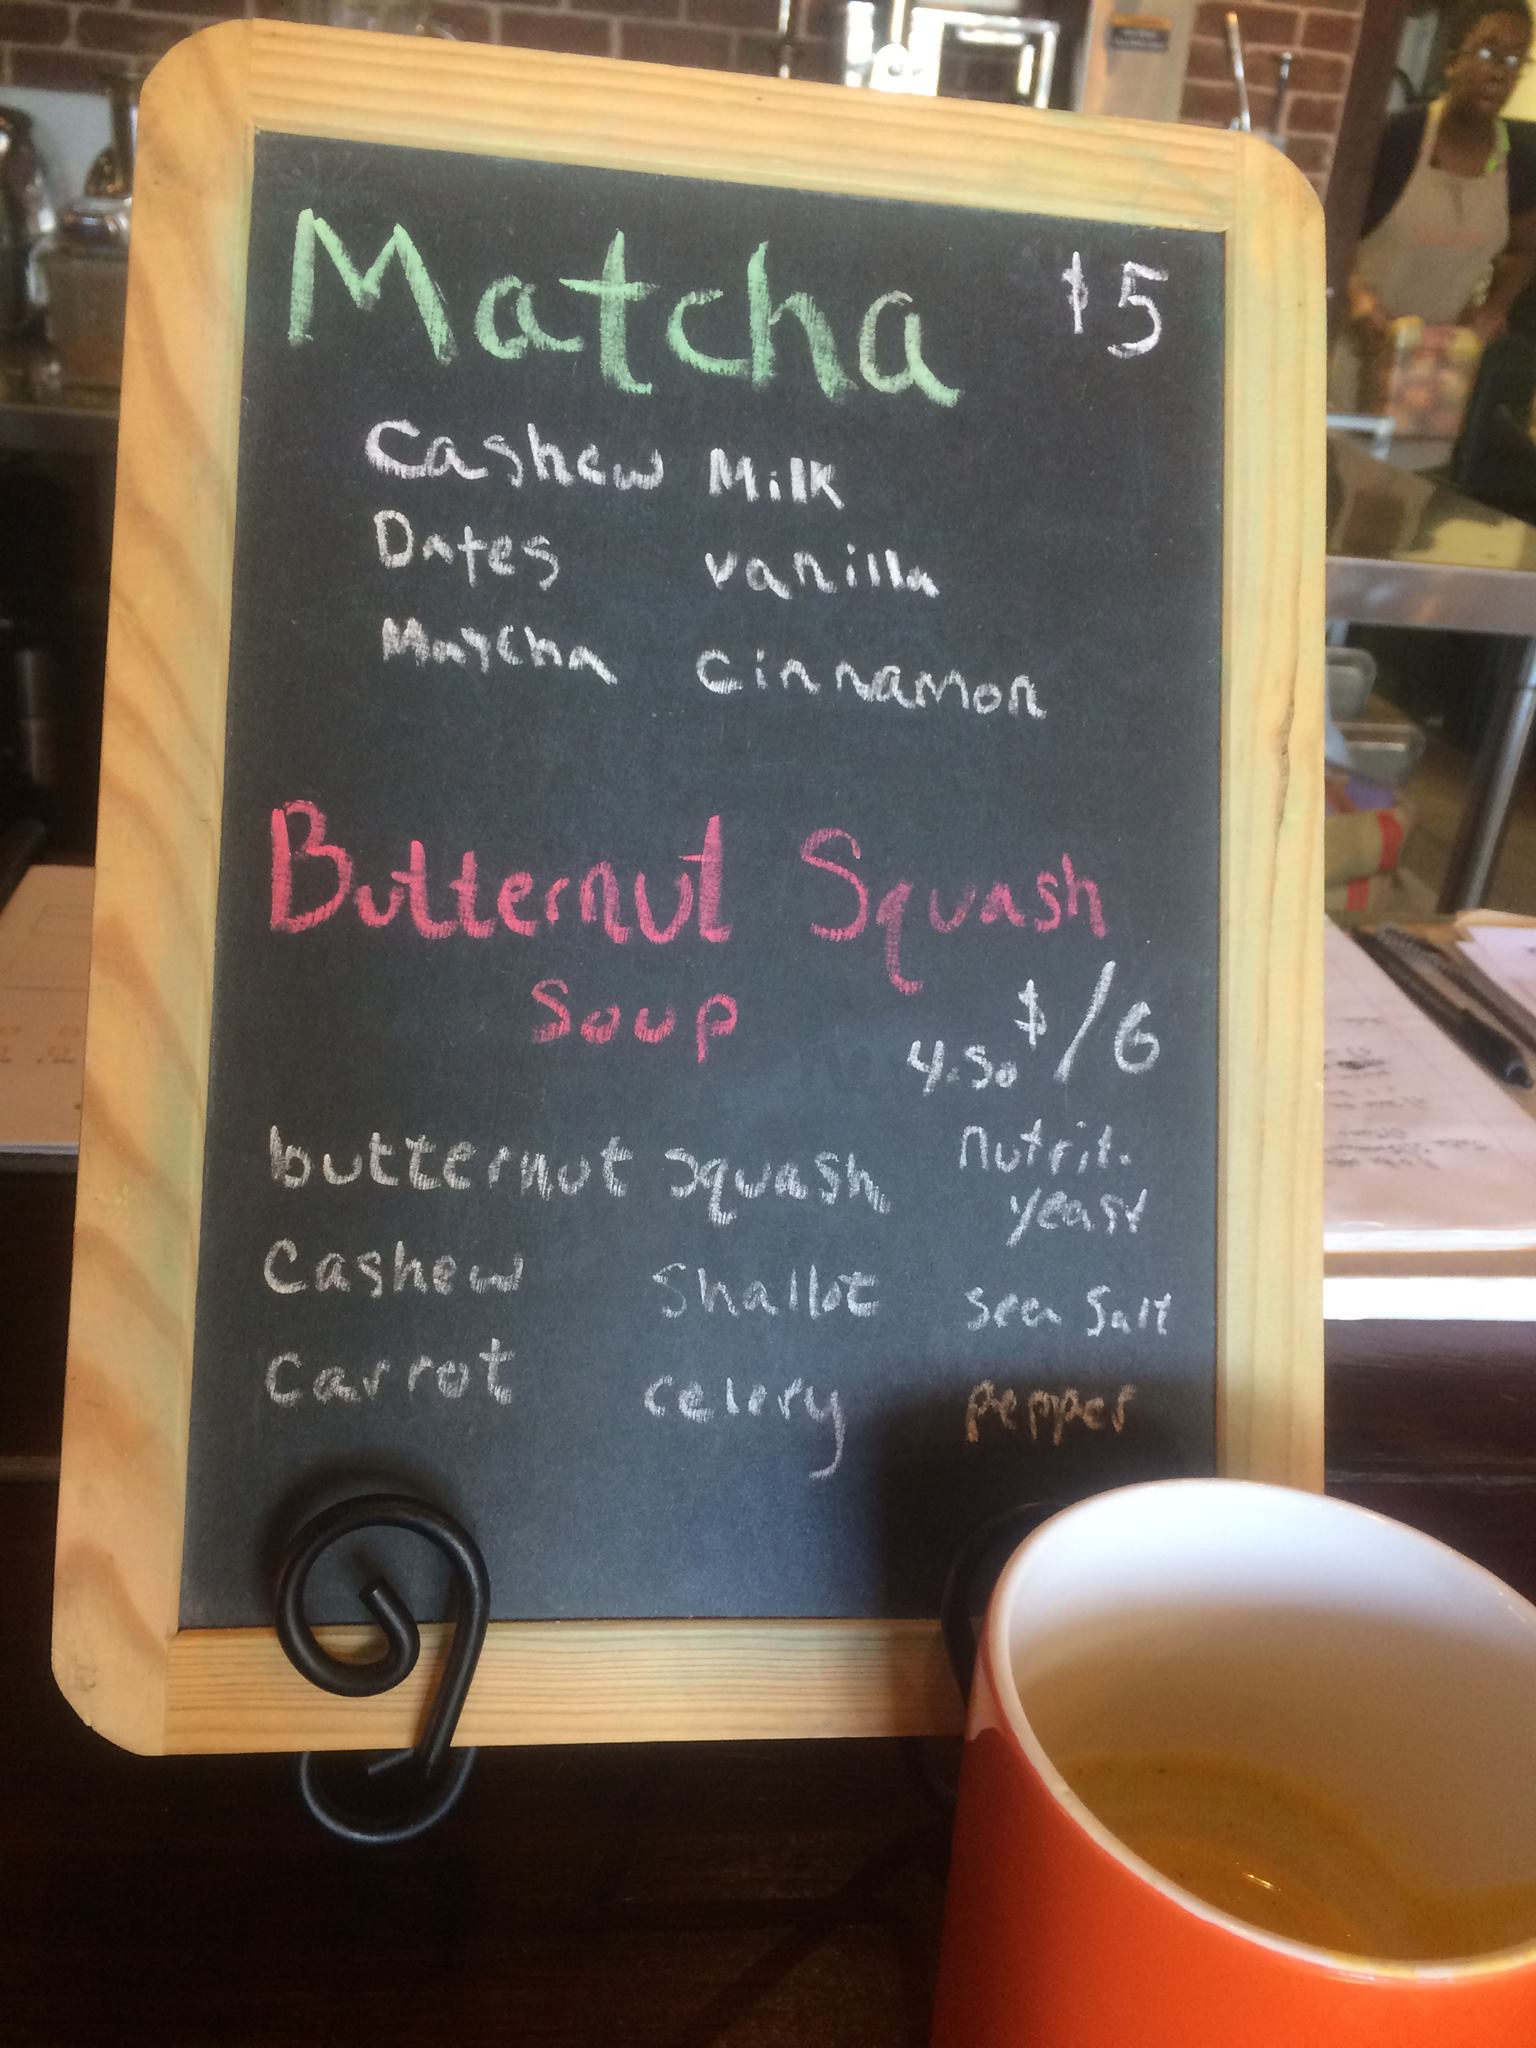 Matcha $5
Cashew Milk
Dates vanilla
Matcha cinnamon
Butternut Squash
Soup
4.50 $/6
butternut squash nutrit. yeast
Cashew Shallot sea salt
Carrot celery pepper